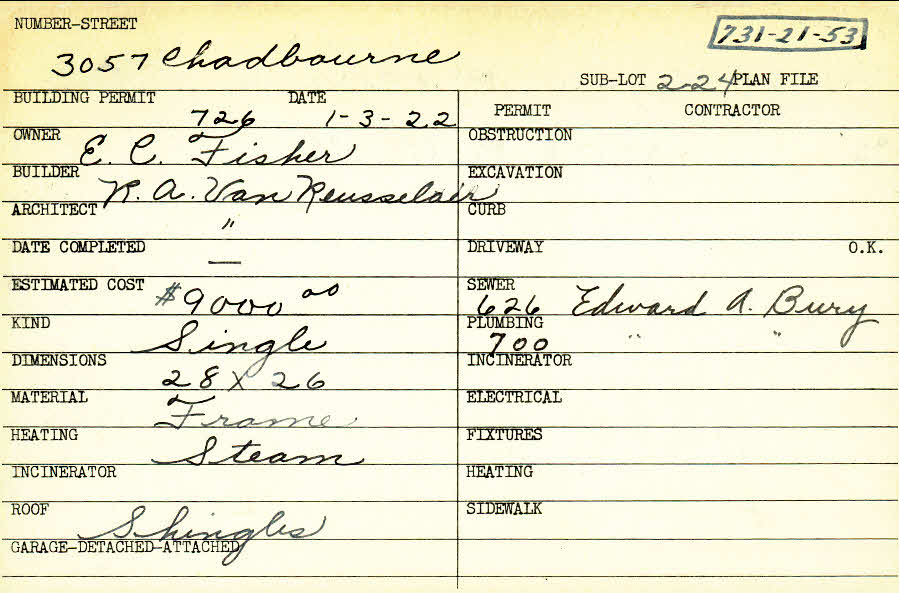 NUMBER-STREET
731-21-53
3057 Chadbourne
SUB-LOT 2-24 PLAN FILE
BUILDING PERMIT DATE
726 1-3-22
PERMIT CONTRACTOR
OWNER E. C. Fisher
OBSTRUCTION
BUILDER R. A. Van Reusselair
EXCAVATION
ARCHITECT "
CURB
DATE COMPLETED —
DRIVEWAY O.K.
ESTIMATED COST $9000 00
SEWER
626 Edward A. Bury
KIND Single
PLUMBING
700 " "
DIMENSIONS 28 x 26
INCINERATOR
MATERIAL Frame
ELECTRICAL
HEATING Steam
FIXTURES
INCINERATOR
HEATING
ROOF Shingles
SIDEWALK
GARAGE-DETACHED-ATTACHED